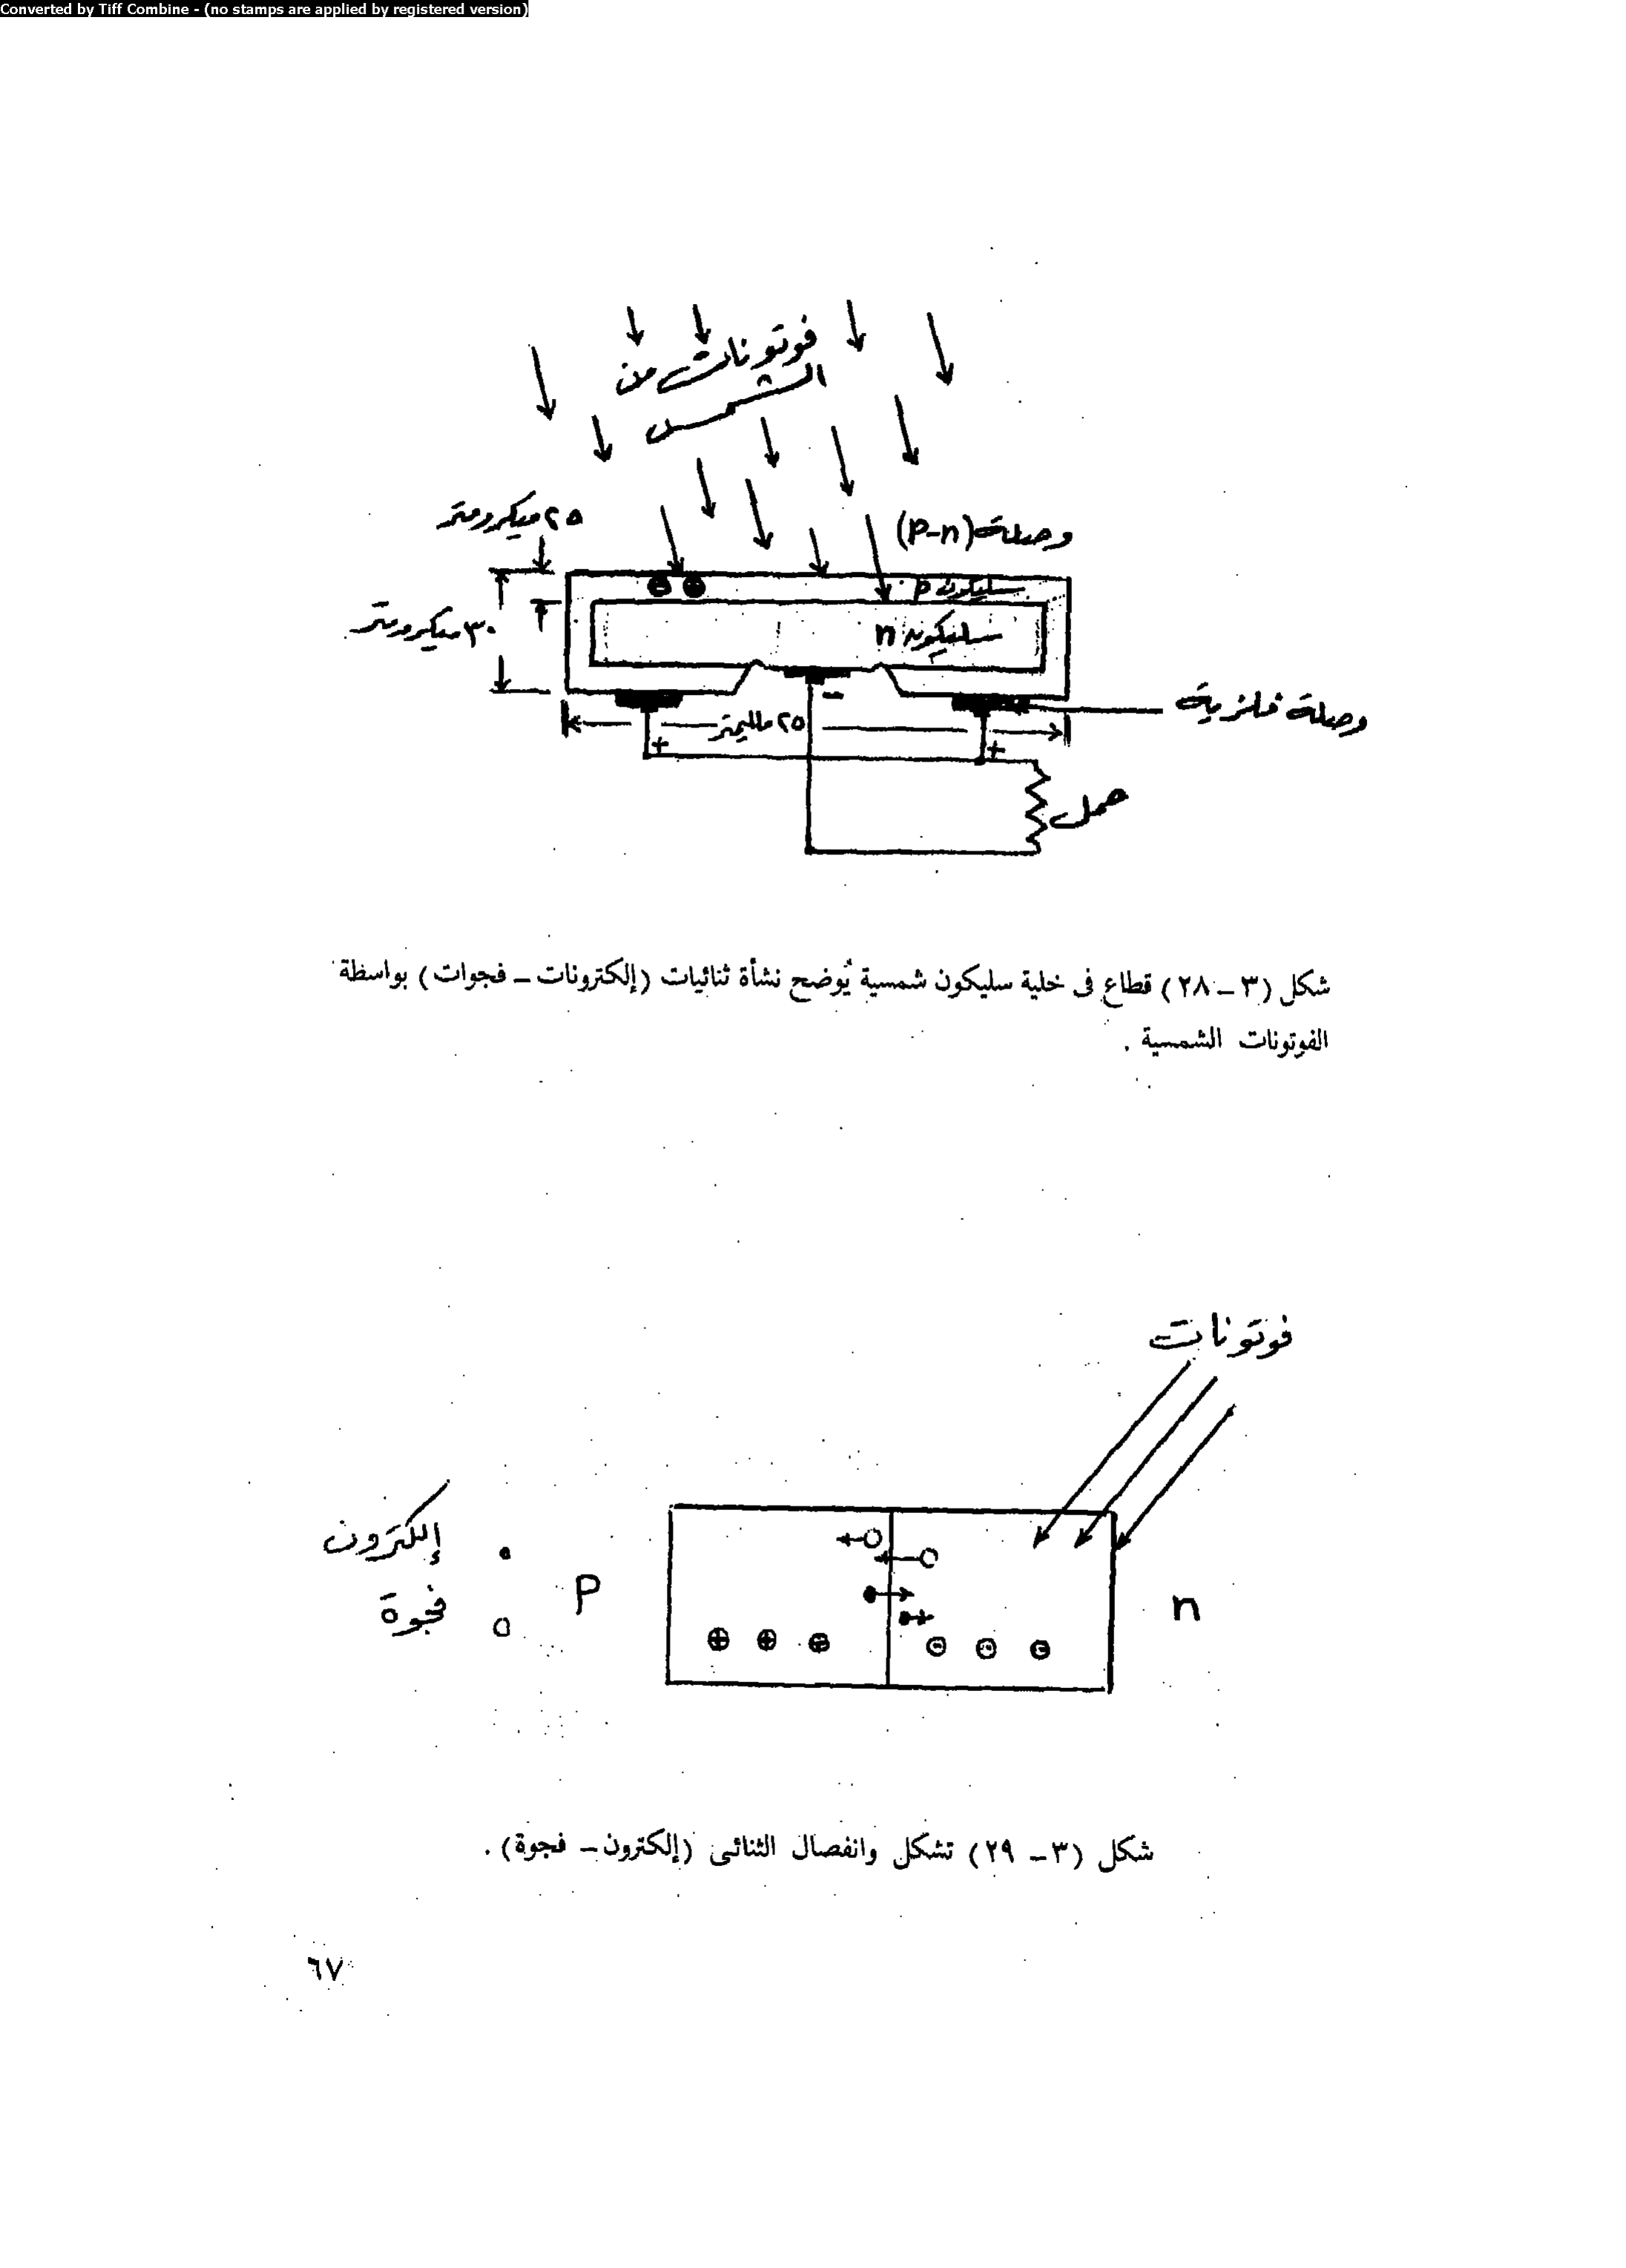 Converted by Tiff Combine - (no stamps are applied by registered version)
فوتونات من
الشمس
٢٥ ميكرومتر
وصلة (p-n)
سليكون p
٣٠ ميكرومتر
سليكون n
-
وصلة فلزية
٢٥ ملليمتر
+ +
حمل
شكل (٣ – ٢٨) قطاع فى خلية سليكون شمسية يُوضح نشأة ثنائيات (إلكترونات – فجوات) بواسطة
الفوتونات الشمسية .
فوتونات
إلكترون
P
n
فجوة
شكل (٣ – ٢٩) تشكل وانفصال الثنائى (إلكترون – فجوة) .
٦٧